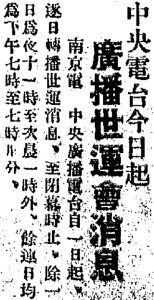 中央電台今日起
廣播世運會消息
南京電　中央廣播電台自一日起、
逐日轉播世運消息、至閉幕時止、除一
日為夜十一時至次晨一時外、餘逐日均
為下午七時至七時卅分、